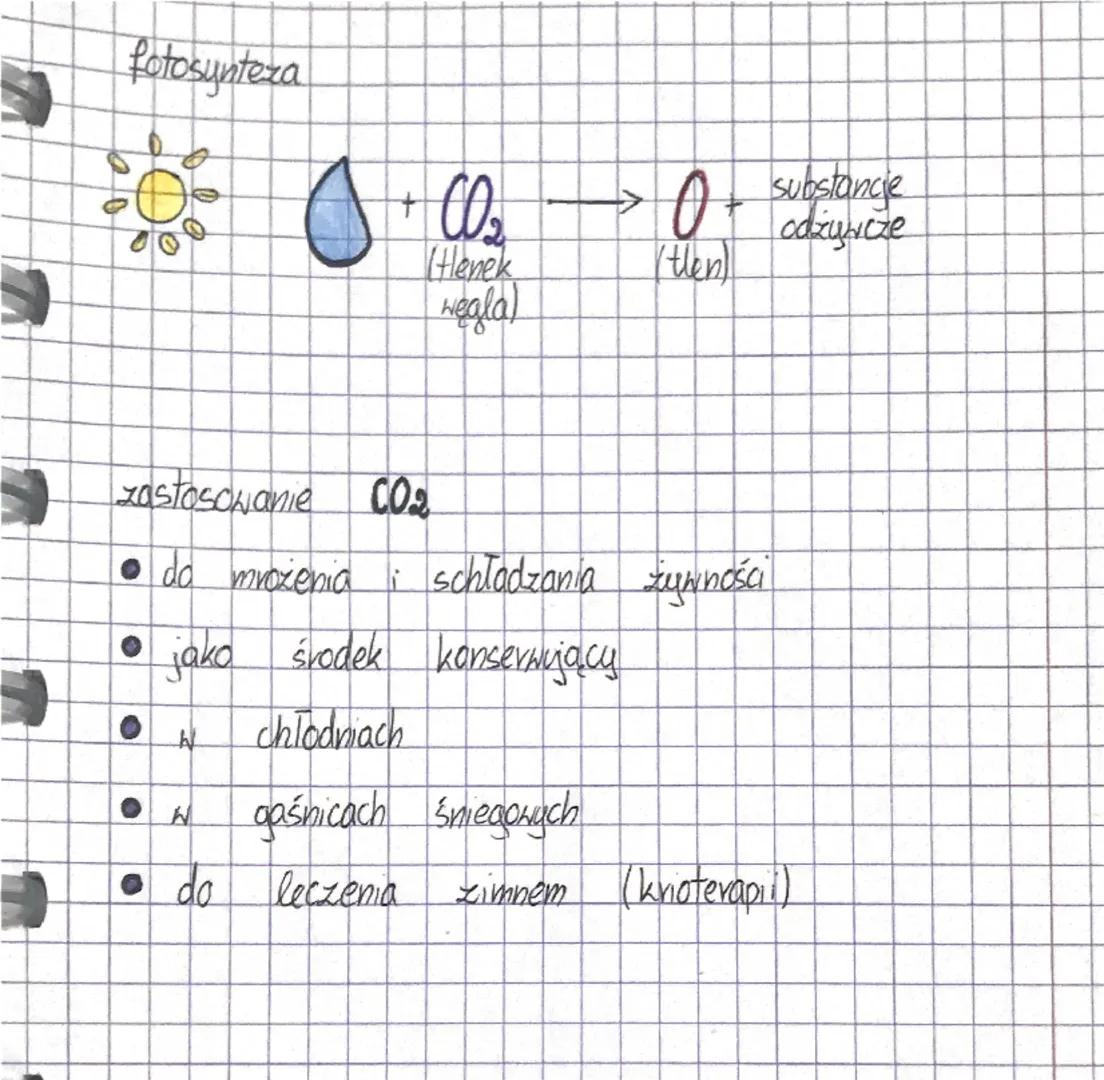 fotosynteza
+ CO₂ → O + substancje
odżywcze
(tlenek
węgla)
(tlen)
zastosowanie CO₂
• do mrożenia i schładzania żywności
• jako środek konserwujący
• w chłodniach
• w gaśnicach śniegowych
• do leczenia zimnem (krioterapii)